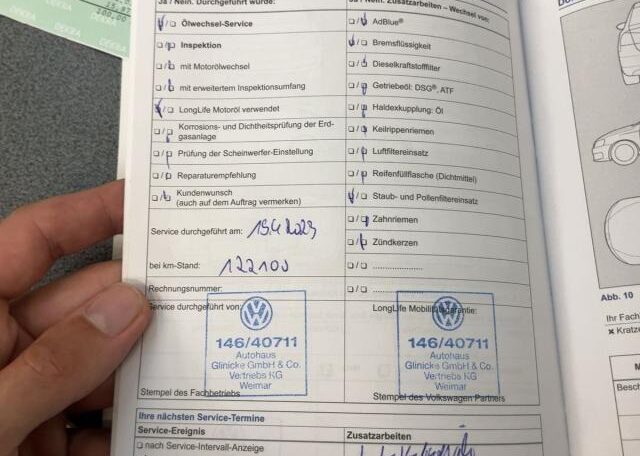 DEKRA
DEKRA
100,00
Ja / Nein: Durchgeführt wurde:
☑/☐ Ölwechsel-Service
☐/☑ Inspektion
☐/☑ mit Motorölwechsel
☐/☑ mit erweitertem Inspektionsumfang
☑/☐ LongLife Motoröl verwendet
☐/☑ Korrosions- und Dichtheitsprüfung der Erd-
gasanlage
☐/☑ Prüfung der Scheinwerfer-Einstellung
☐/☑ Reparaturempfehlung
☐/☑ Kundenwunsch
(auch auf dem Auftrag vermerken)
Service durchgeführt am: 19.4.2023
bei km-Stand: 122100
Rechnungsnummer:
Service durchgeführt von:
146/40711
Autohaus
Glinicke GmbH & Co.
Vertriebs KG
Weimar
Stempel des Fachbetriebs
Ja / Nein: Zusatzarbeiten – Wechsel von:
☐/☑ AdBlue®
☑/☐ Bremsflüssigkeit
☐/☑ Dieselkraftstofffilter
☐/☑ Getriebeöl: DSG®, ATF
☐/☑ Haldexkupplung: Öl
☐/☑ Keilrippenriemen
☐/☑ Luftfiltereinsatz
☐/☑ Reifenfüllflasche (Dichtmittel)
☑/☐ Staub- und Pollenfiltereinsatz
☐/☑ Zahnriemen
☐/☑ Zündkerzen
☐/☐ ....................
☐/☐ ....................
LongLife Mobilitätsgarantie:
146/40711
Autohaus
Glinicke GmbH & Co.
Vertriebs KG
Weimar
Stempel des Volkswagen Partners
Ihre nächsten Service-Termine
Service-Ereignis
Zusatzarbeiten
☐ nach Service-Intervall-Anzeige
Abb. 10
Ihr Fach
× Kratze
Besch